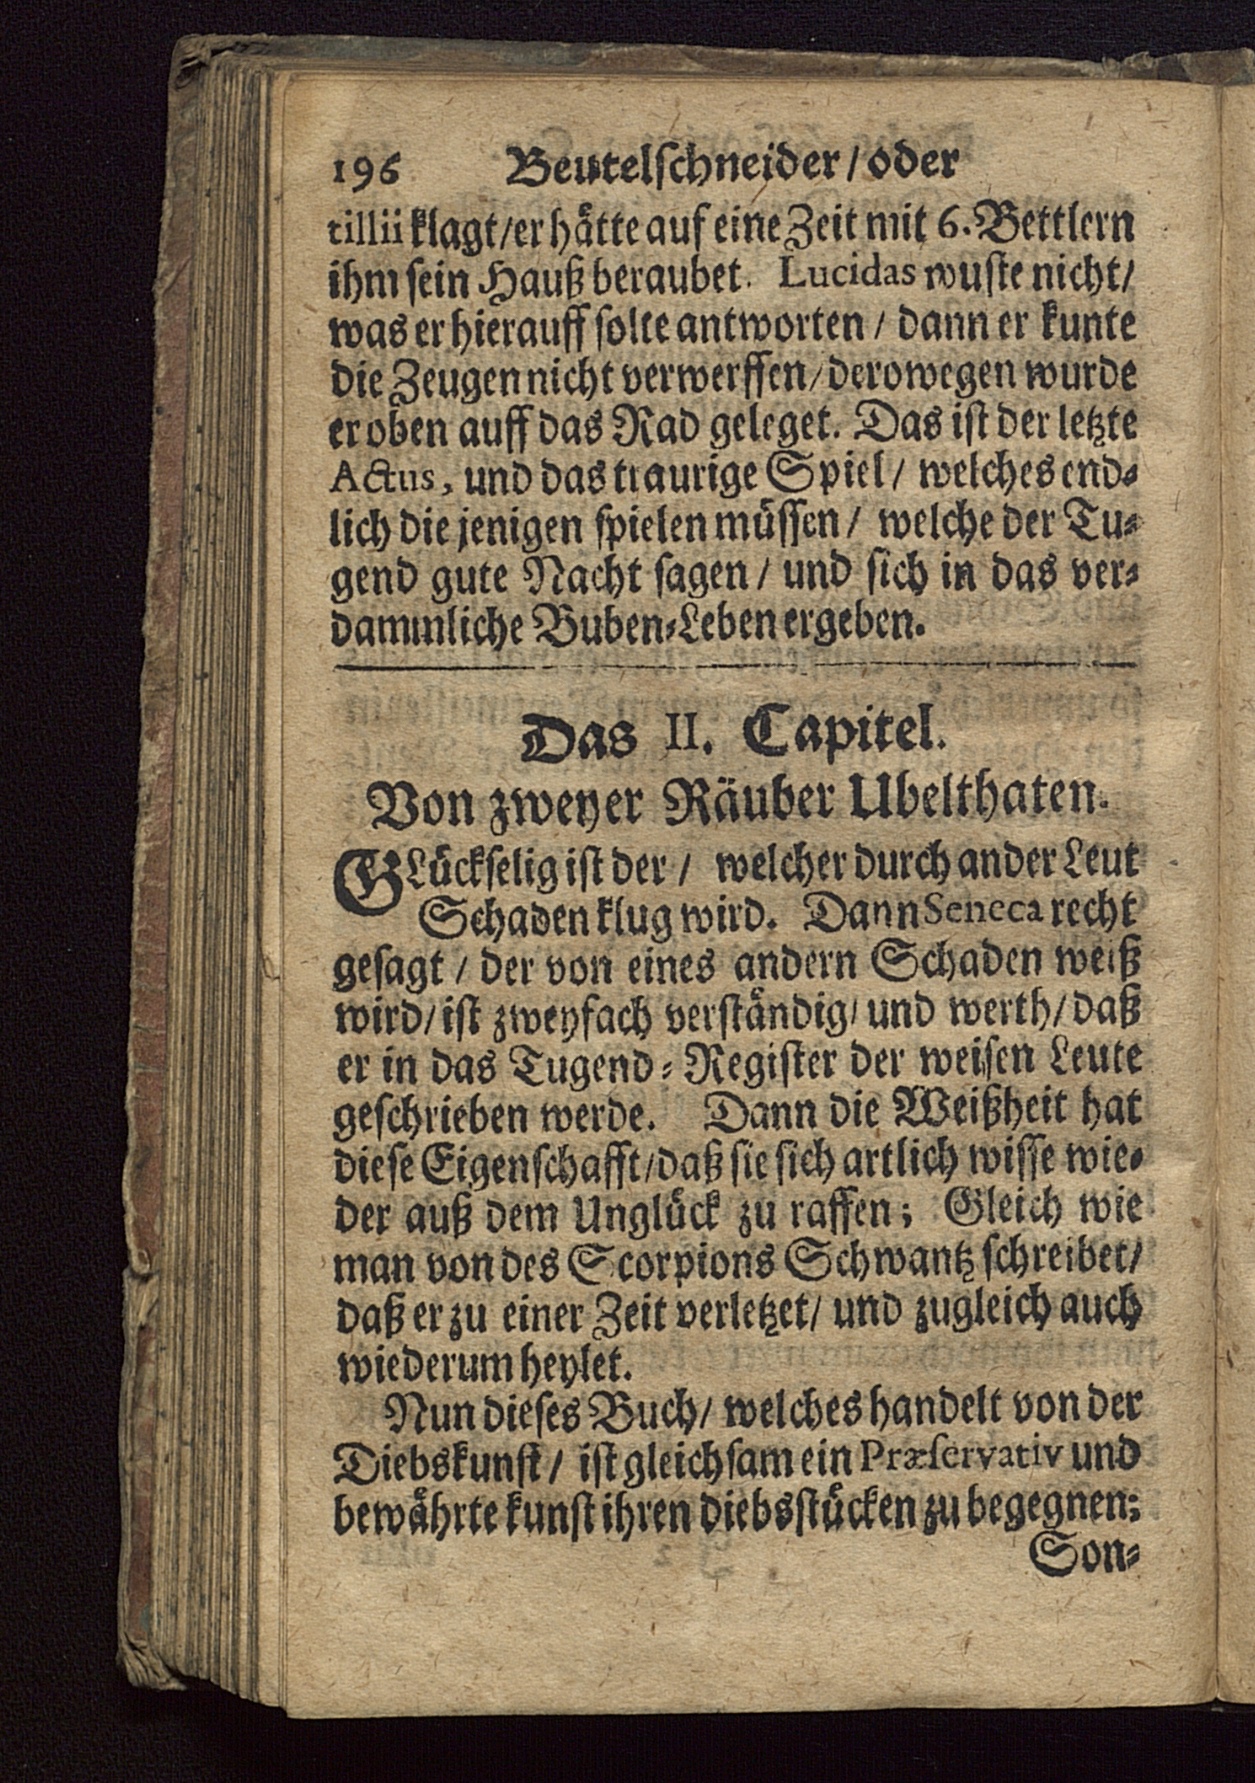 196 Beutelschneider / oder
tillii klagt / er hätte auf eine Zeit mit 6. Bettlern
ihm sein Hauß beraubet. Lucidas wuste nicht /
was er hierauff solte antworten / dann er kunte
die Zeugen nicht verwerffen / derowegen wurde
er oben auff das Rad geleget. Das ist der letzte
Actus, und das traurige Spiel / welches end-
lich die jenigen spielen müssen / welche der Tu-
gend gute Nacht sagen / und sich in das ver-
dammliche Buben-Leben ergeben.
Das II. Capitel.
Von zweyer Räuber Ubelthaten.
GLückselig ist der / welcher durch ander Leut
Schaden klug wird. Dann Seneca recht
gesagt / der von eines andern Schaden weiß
wird / ist zweyfach verständig / und werth / daß
er in das Tugend-Register der weisen Leute
geschrieben werde. Dann die Weißheit hat
diese Eigenschafft / daß sie sich artlich wisse wie-
der auß dem Unglück zu raffen; Gleich wie
man von des Scorpions Schwantz schreibet /
daß er zu einer Zeit verletzet / und zugleich auch
wiederum heylet.
Nun dieses Buch / welches handelt von der
Diebskunst / ist gleichsam ein Præservativ und
bewährte kunst ihren diebsstücken zu begegnen;
Son-